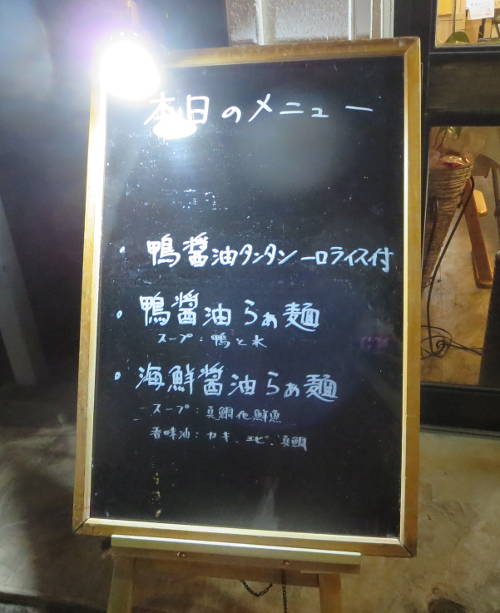 本日のメニュー
・鴨醤油タンタン 一口ライス付
・鴨醤油らぁ麺
スープ:鴨と水
・海鮮醤油らぁ麺
スープ:真鯛他鮮魚
香味油:カキ、エビ、真鯛